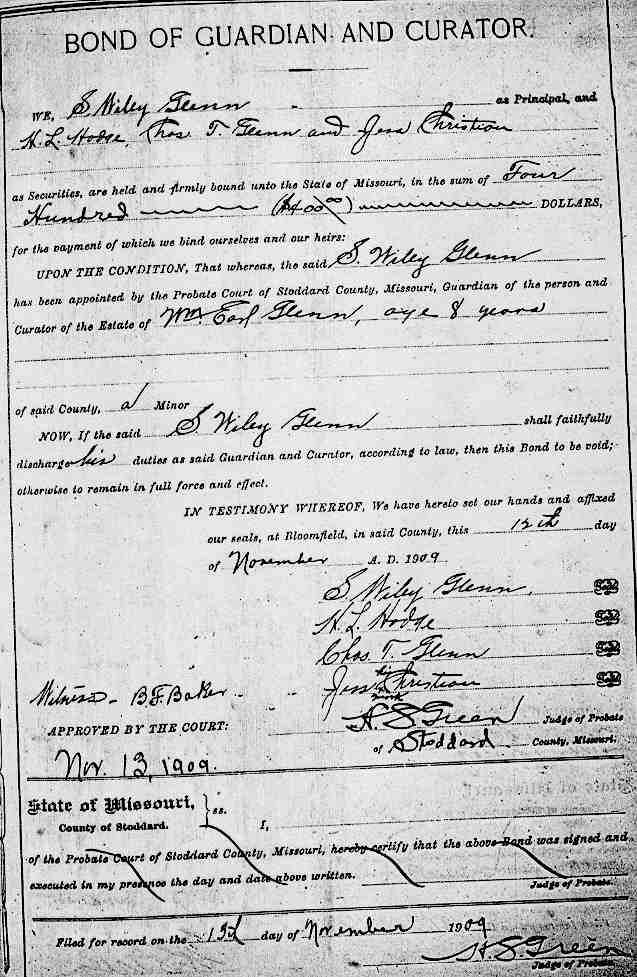 BOND OF GUARDIAN AND CURATOR.
WE, S Wiley Glenn as Principal, and
H. L. Hodge, Chas T. Glenn and Jess Christian
as Securities, are held and firmly bound unto the State of Missouri, in the sum of Four
Hundred ($400 00) DOLLARS,
for the payment of which we bind ourselves and our heirs:
UPON THE CONDITION, That whereas, the said S. Wiley Glenn
has been appointed by the Probate Court of Stoddard County, Missouri, Guardian of the person and
Curator of the Estate of Wm. Earl Glenn, age 8 years
of said County, a Minor
NOW, If the said S. Wiley Glenn shall faithfully
discharge his duties as said Guardian and Curator, according to law, then this Bond to be void;
otherwise to remain in full force and effect.
IN TESTIMONY WHEREOF, We have hereto set our hands and affixed
our seals, at Bloomfield, in said County, this 12th day
of November A. D. 1909
S. Wiley Glenn. Seal
H. L. Hodge Seal
Chas T. Glenn Seal
his
Witness - B. F. Baker Jess Christian Seal
mark
APPROVED BY THE COURT: H. S. Green Judge of Probate
of Stoddard County, Missouri.
Nov. 13, 1909.
State of Missouri,
County of Stoddard. ss. I,
of the Probate Court of Stoddard County, Missouri, hereby certify that the above Bond was signed and
executed in my presence the day and date above written.
Judge of Probate.
Filed for record on the 13th day of November 1909
H. S. Green
Judge of Probate.